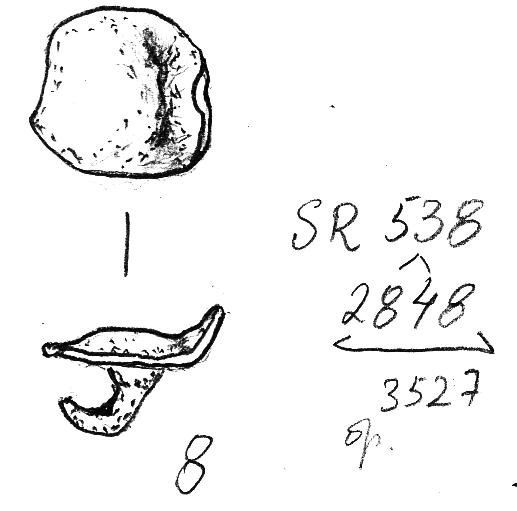 SR 538
2848
3527
ор.
8